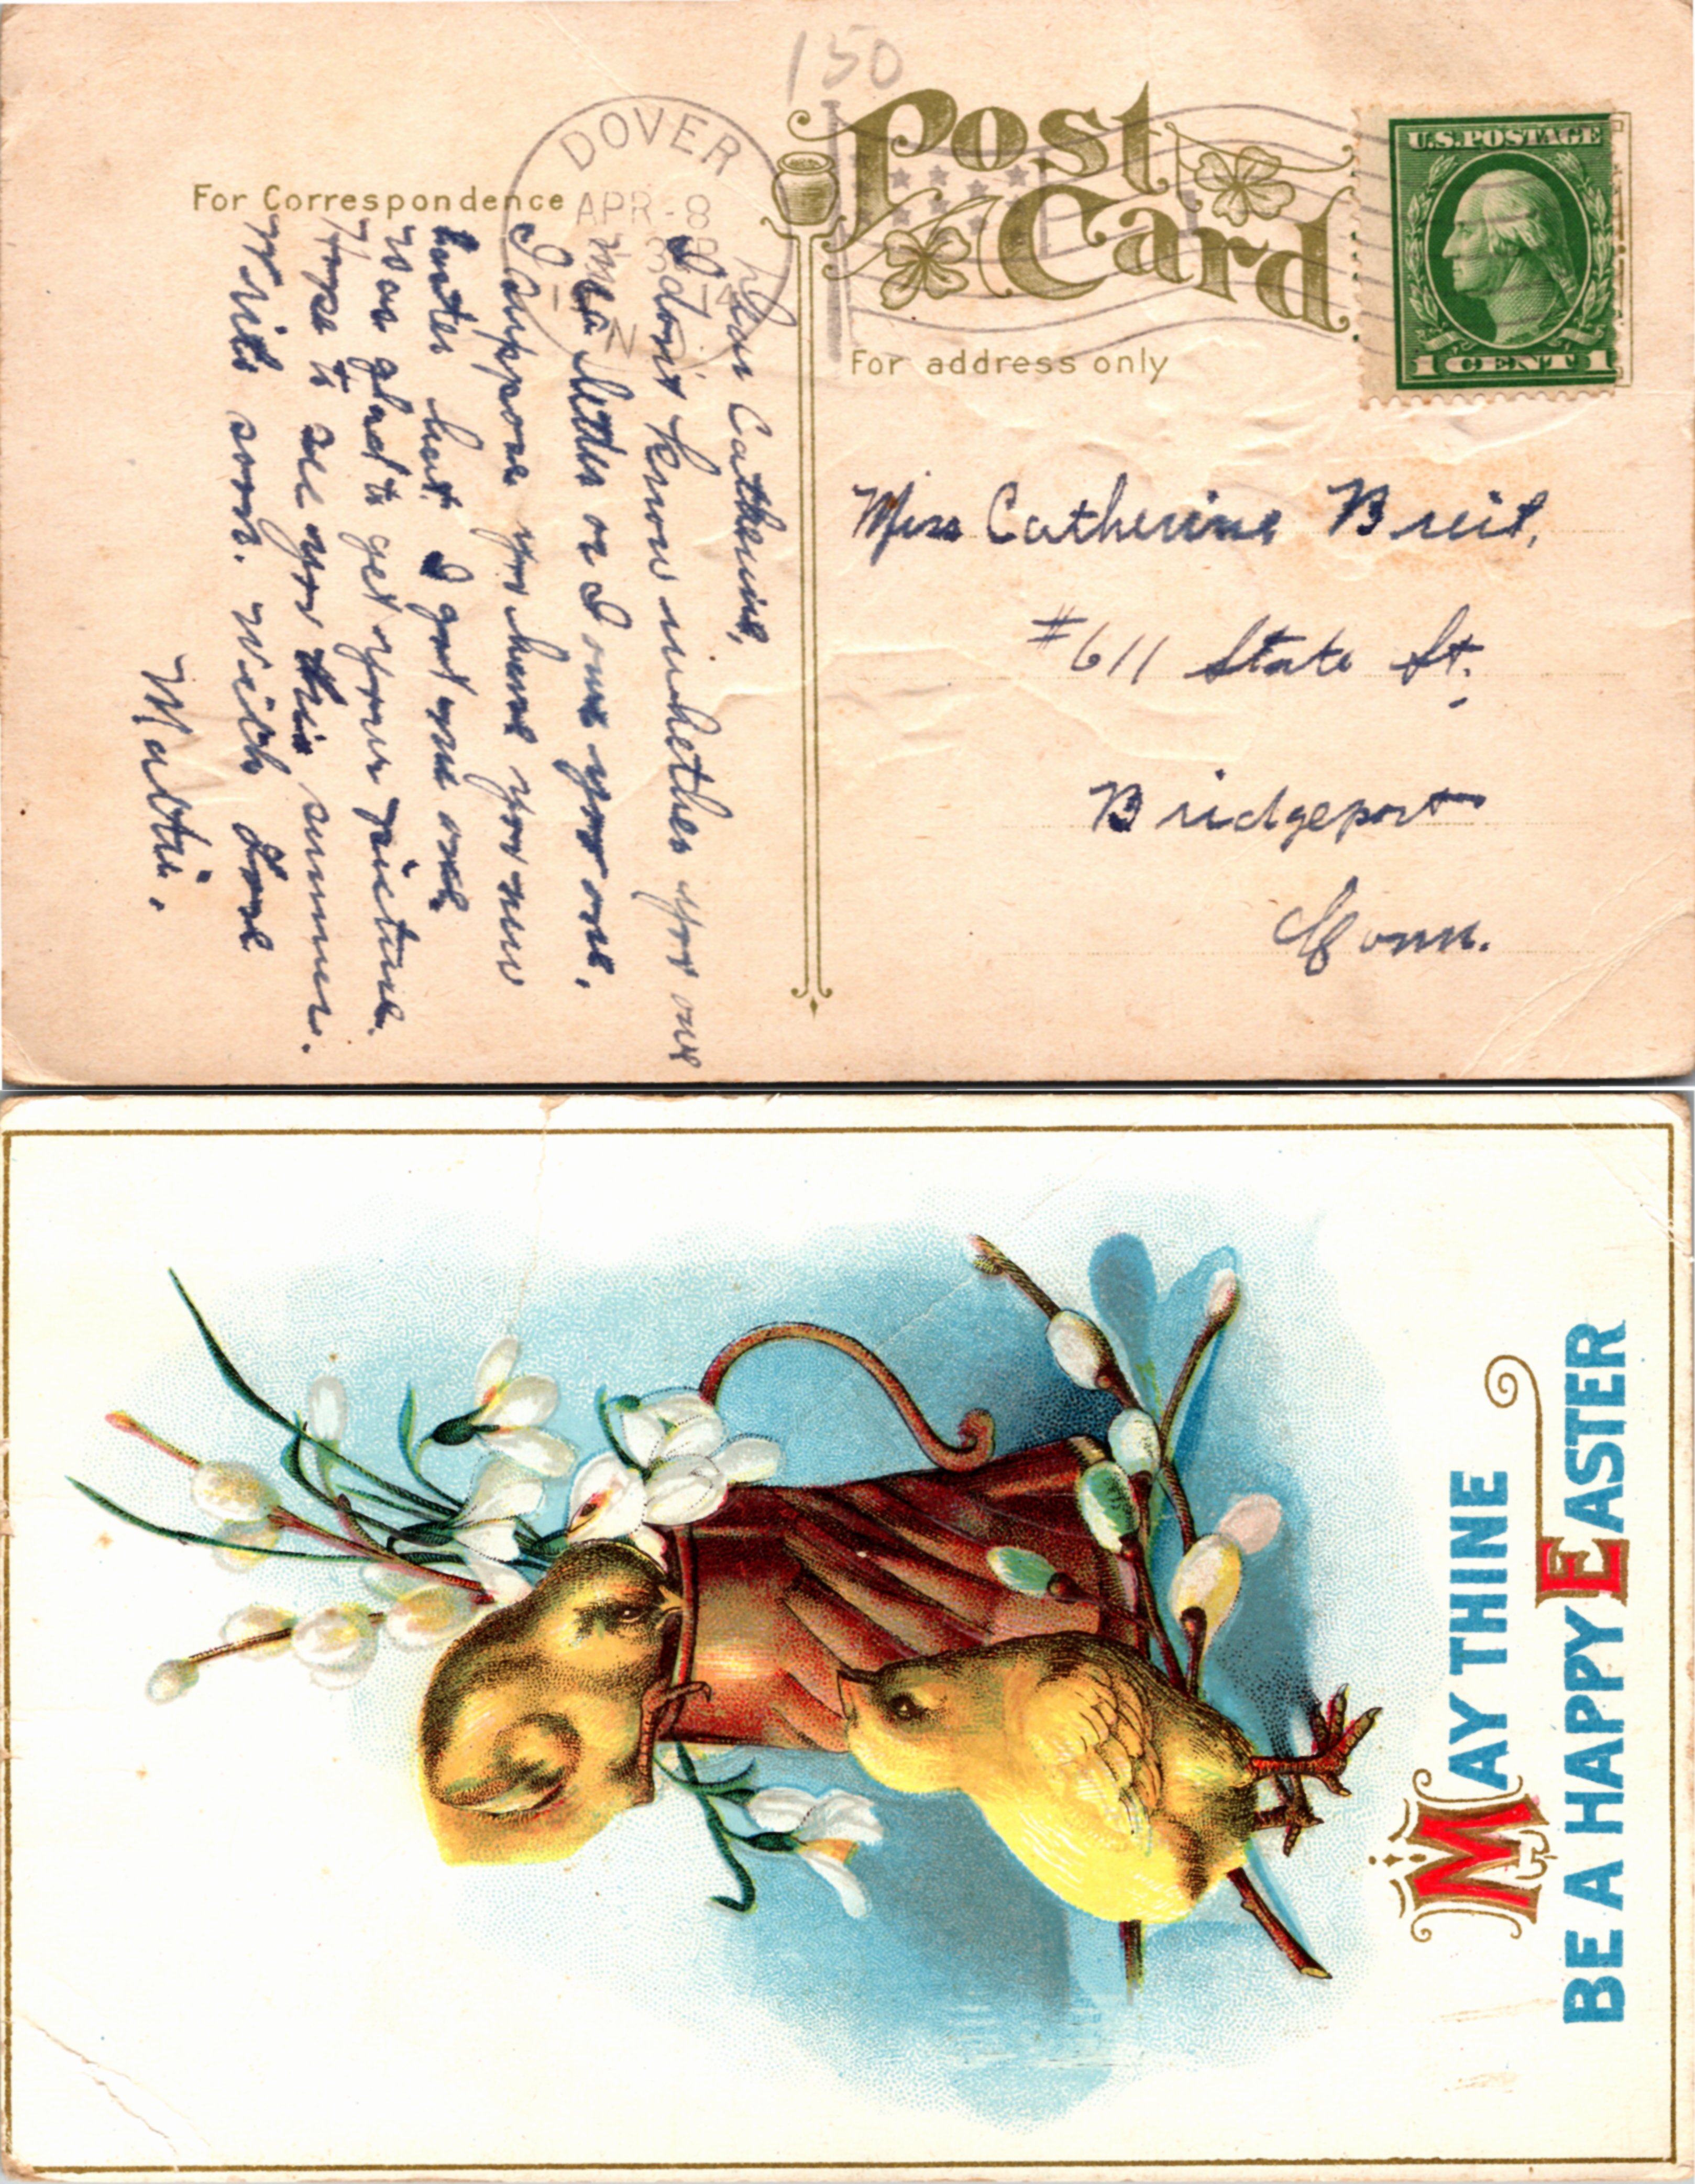 150
DOVER
APR-8
8 30
N
For Correspondence
Post
Card
U.S. POSTAGE
1 CENT 1
For address only
Miss Catherine Breit,
#611 State St.
Bridgeport
Conn.
Dear Catherine,
I don't know whether you owe
me a letter or I owe you one.
I suppose you have you new
hat I got me one
Was glad to get your picture.
Hope to see you this summer.
Write soon. With Love
Mattie.
MAY THINE
BE A HAPPY EASTER